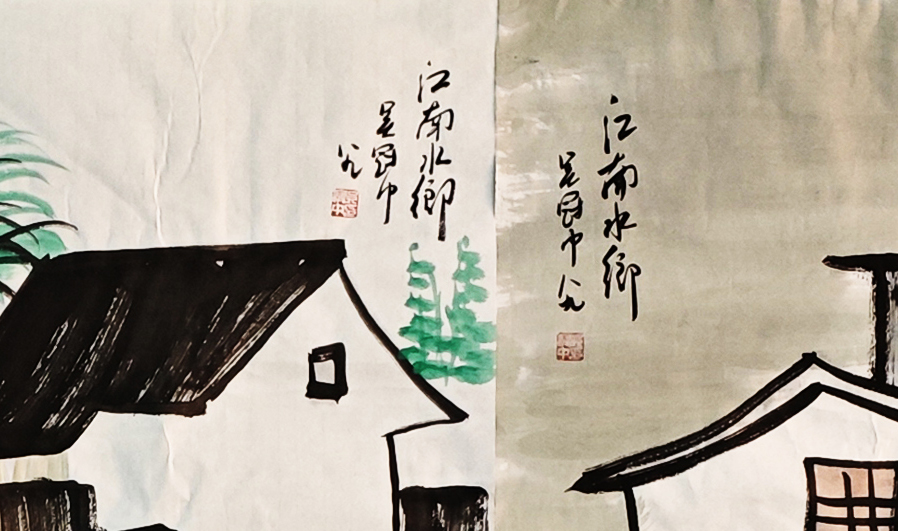 江南水鄉
吴冠中
江南水鄉
吴冠中